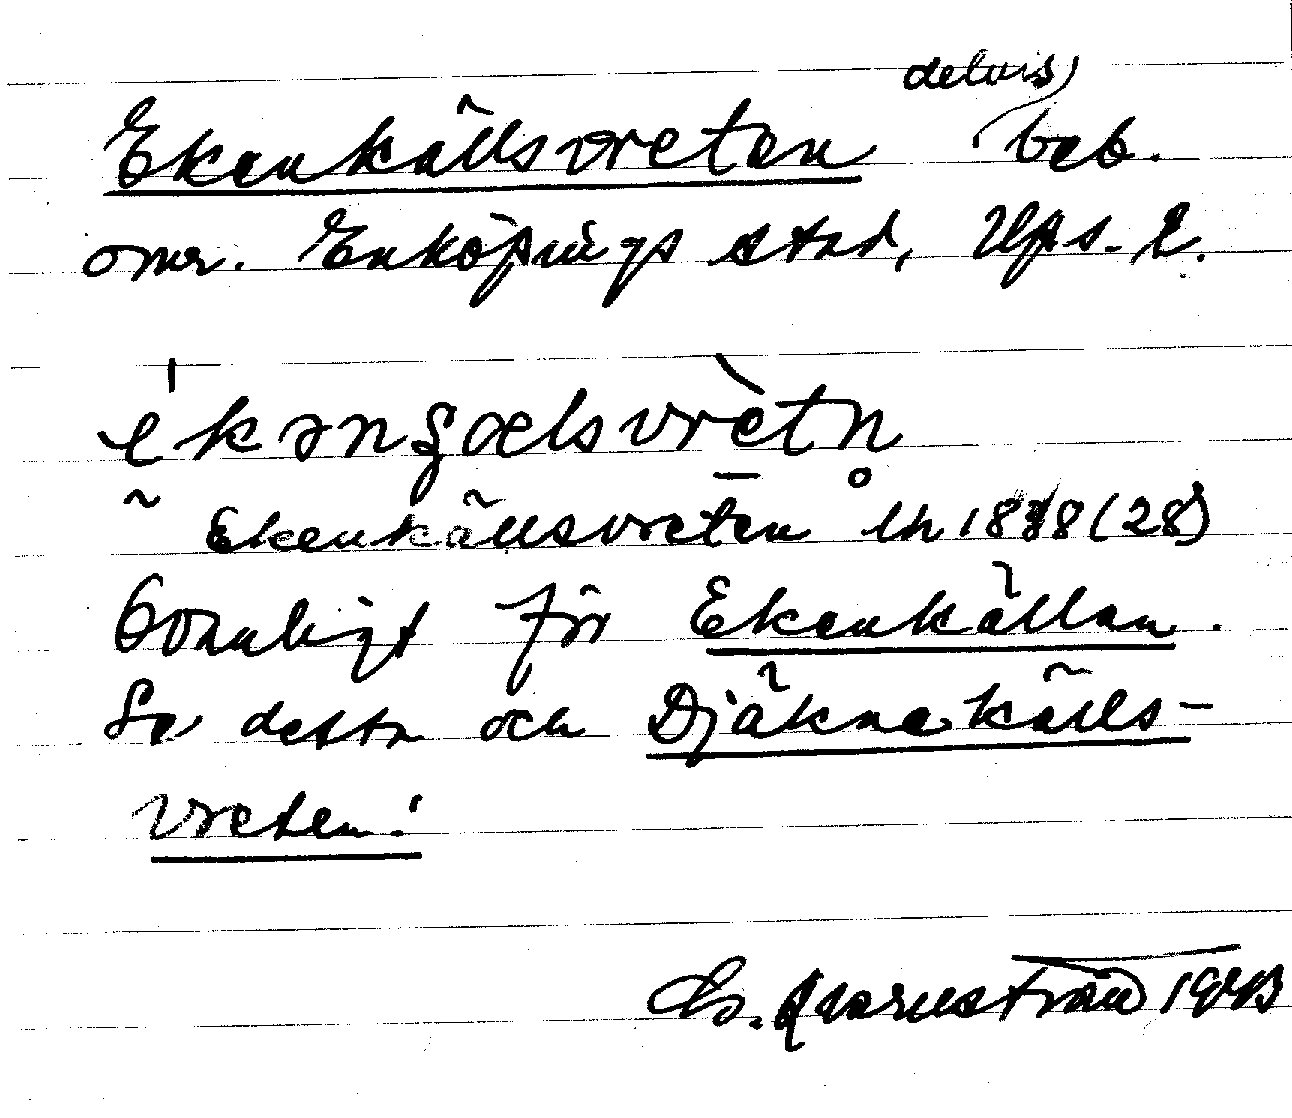 Ekenkällsvreten delvis beb.
omr. Enköpings stad, Ups. l.
ekəngælsvrètn̥
~ Ekenkällsvreten lh 1888 (28)
Bornligt för Ekenkällan.
Se detta och Djäknekälls-
vreten!
Qvarnström 1943